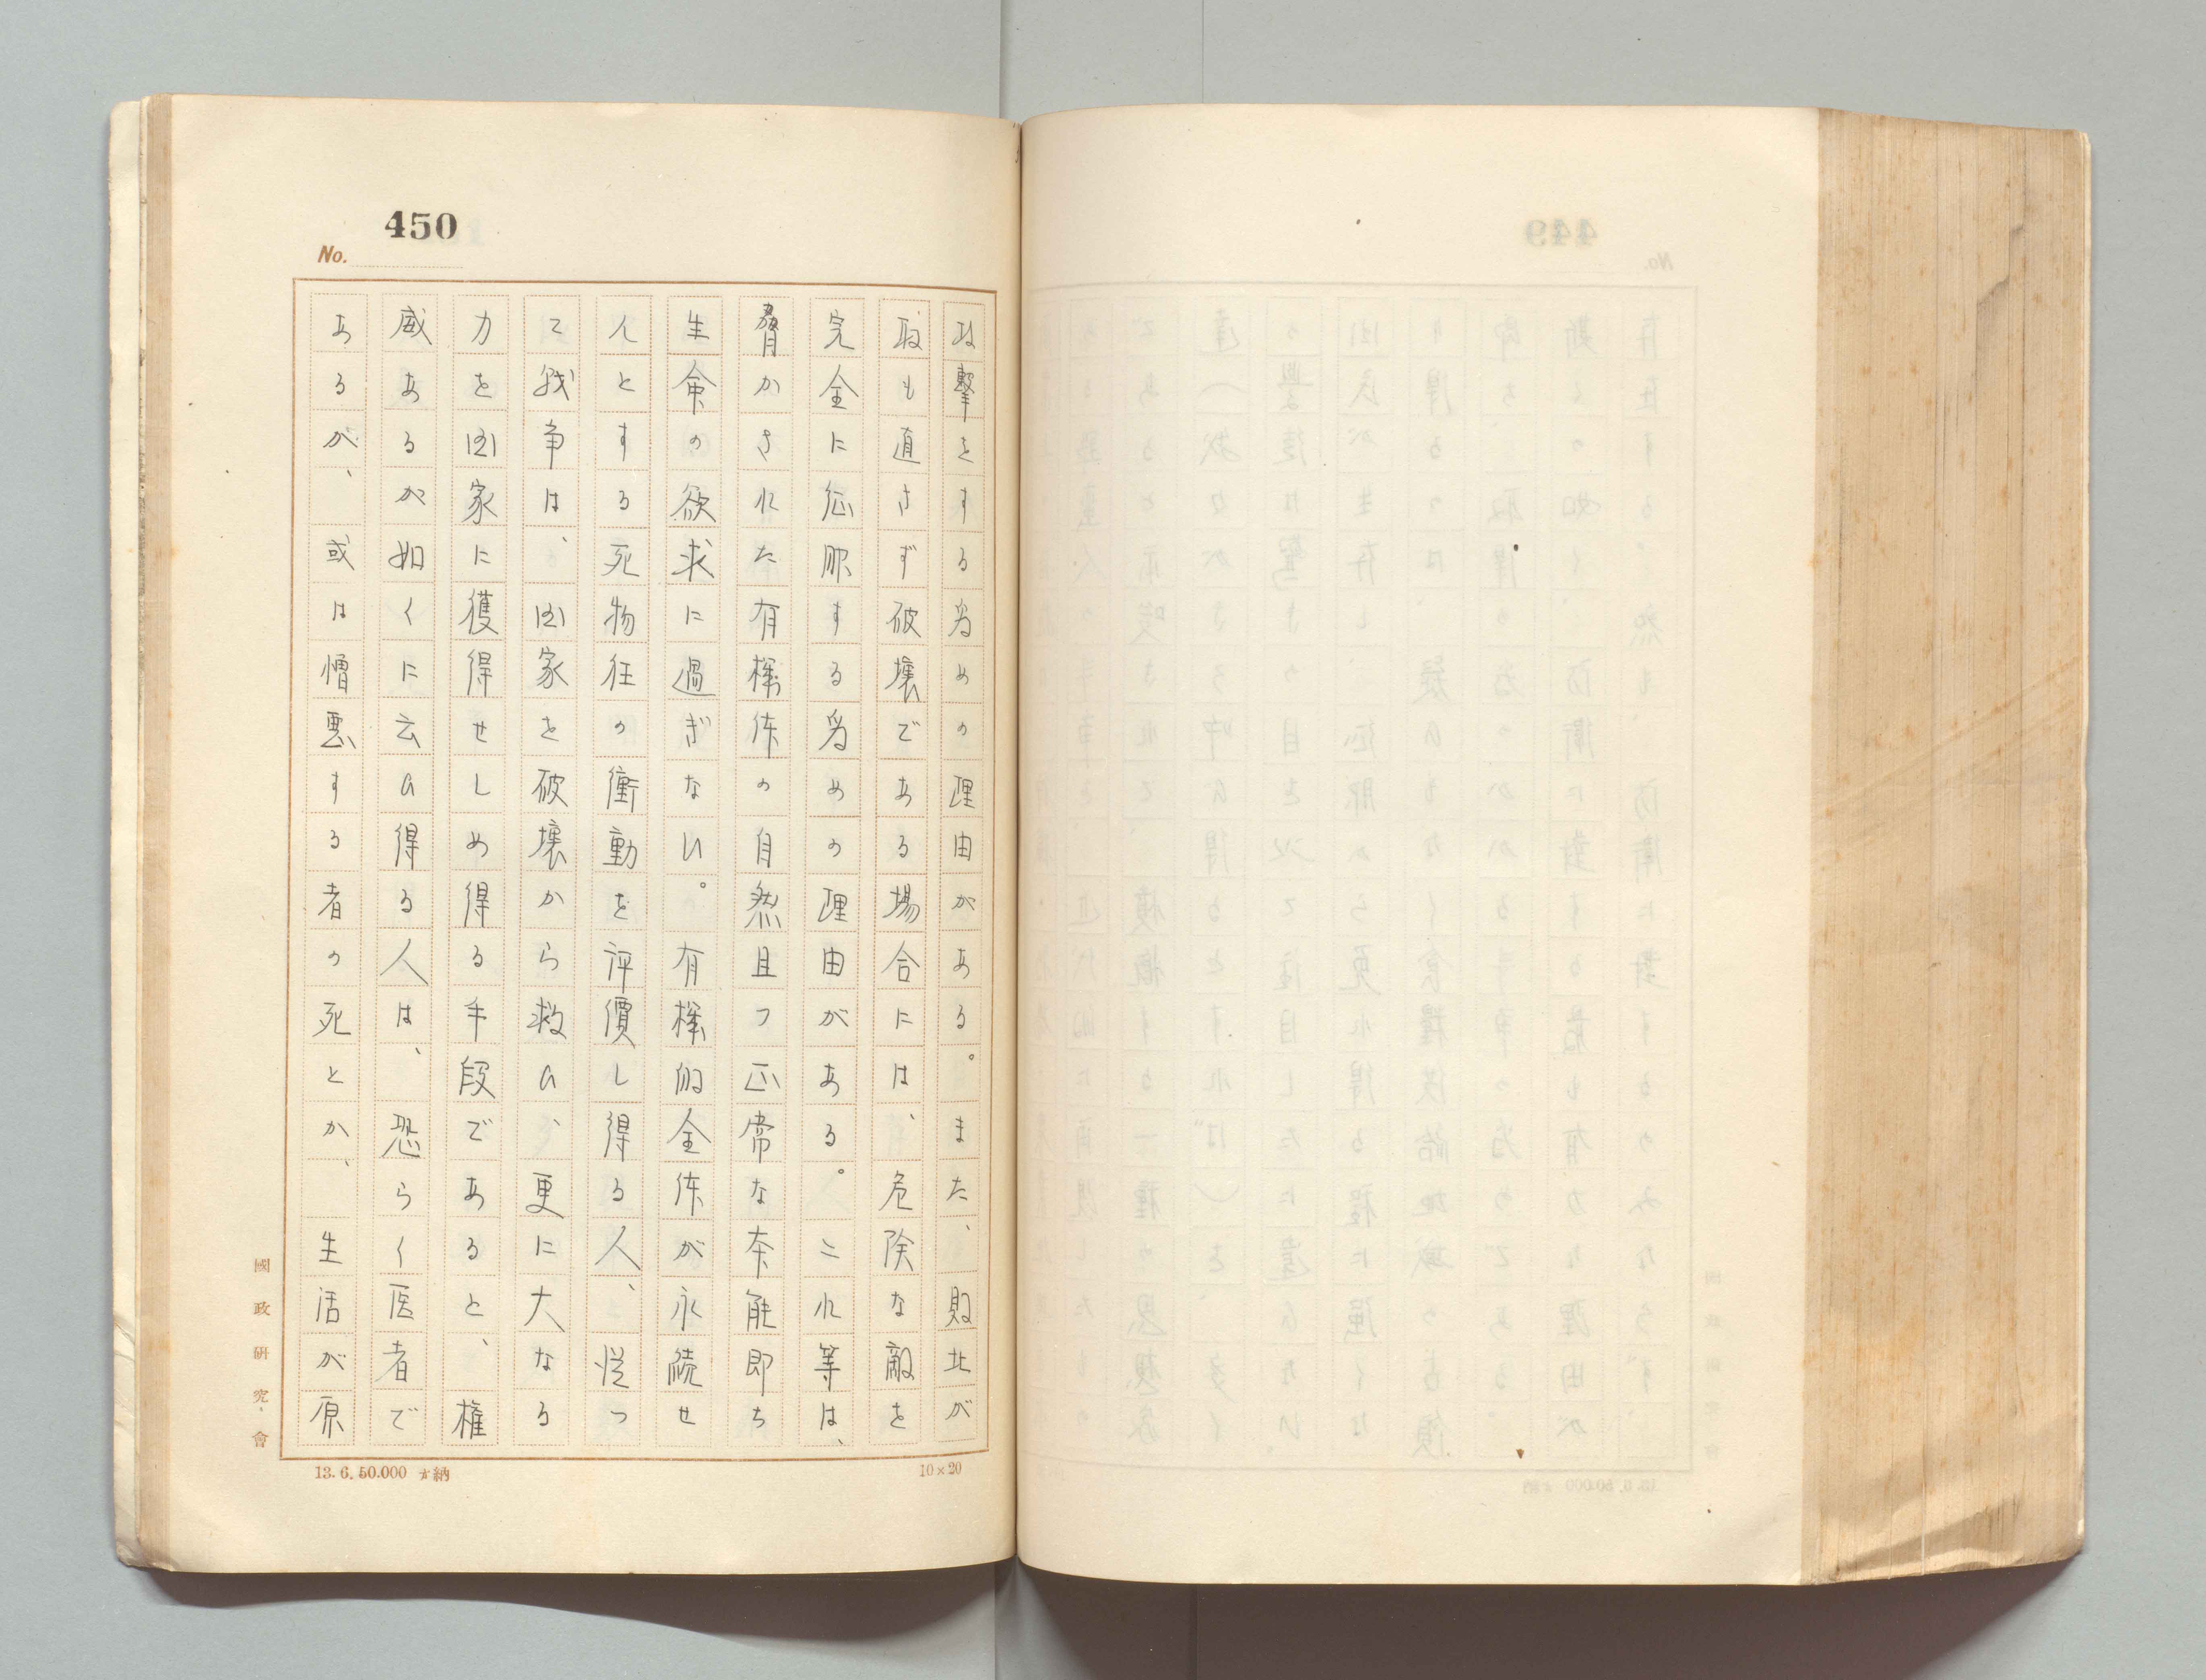 450
No.
攻撃をする為めの理由がある。また、敗北が
取も直さず破壊である場合には、危険な敵を
完全に征服する為めの理由がある。これ等は、
脅かされた有機体の自然且つ正常な本能即ち
生命の欲求に過ぎない。有機的全体が永続せ
んとする死物狂の衝動を評價し得る人、従つ
て戦争は、国家を破壊から救ひ、更に大なる
力を国家に獲得せしめ得る手段であると、権
威あるが如くに云ひ得る人は、恐らく医者で
あるが、或は憎悪する者の死とか、生活が原
國政研究會
13.6.50.000 納
10×20